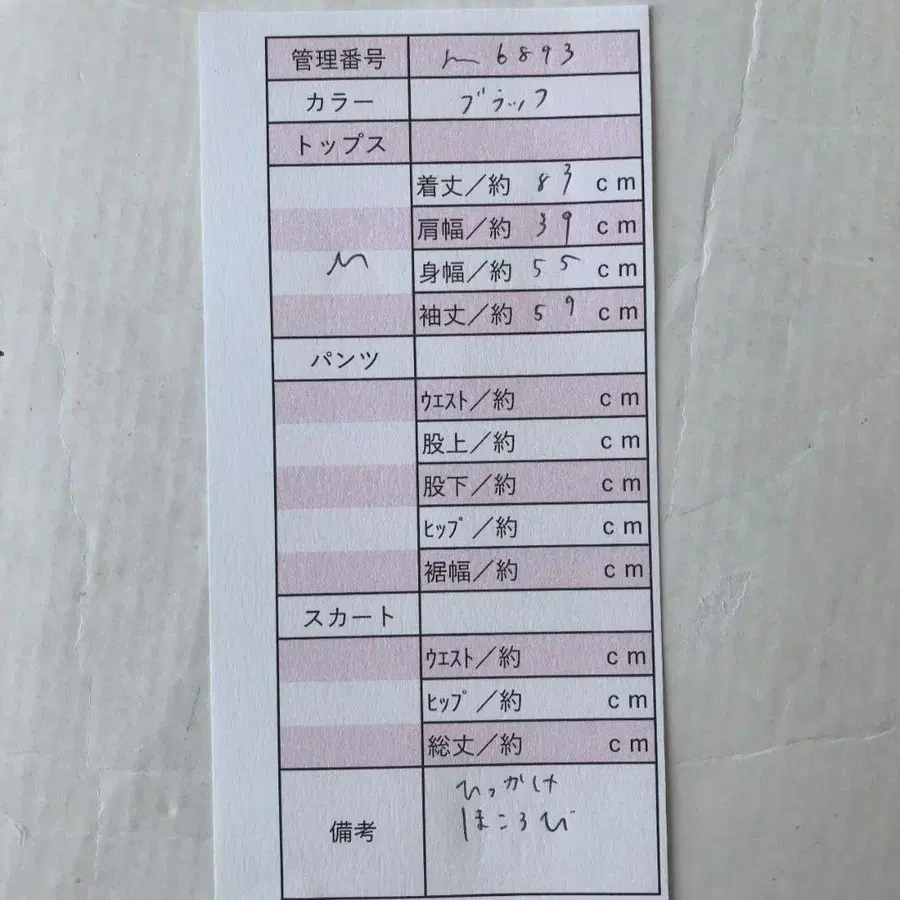 管理番号 m 6893
カラー ブラック
トップス
着丈/約 83 cm
肩幅/約 39 cm
M 身幅/約 55 cm
袖丈/約 59 cm
パンツ
ウエスト/約 cm
股上/約 cm
股下/約 cm
ヒップ/約 cm
裾幅/約 cm
スカート
ウエスト/約 cm
ヒップ/約 cm
総丈/約 cm
備考 ひっかけ
ほころび